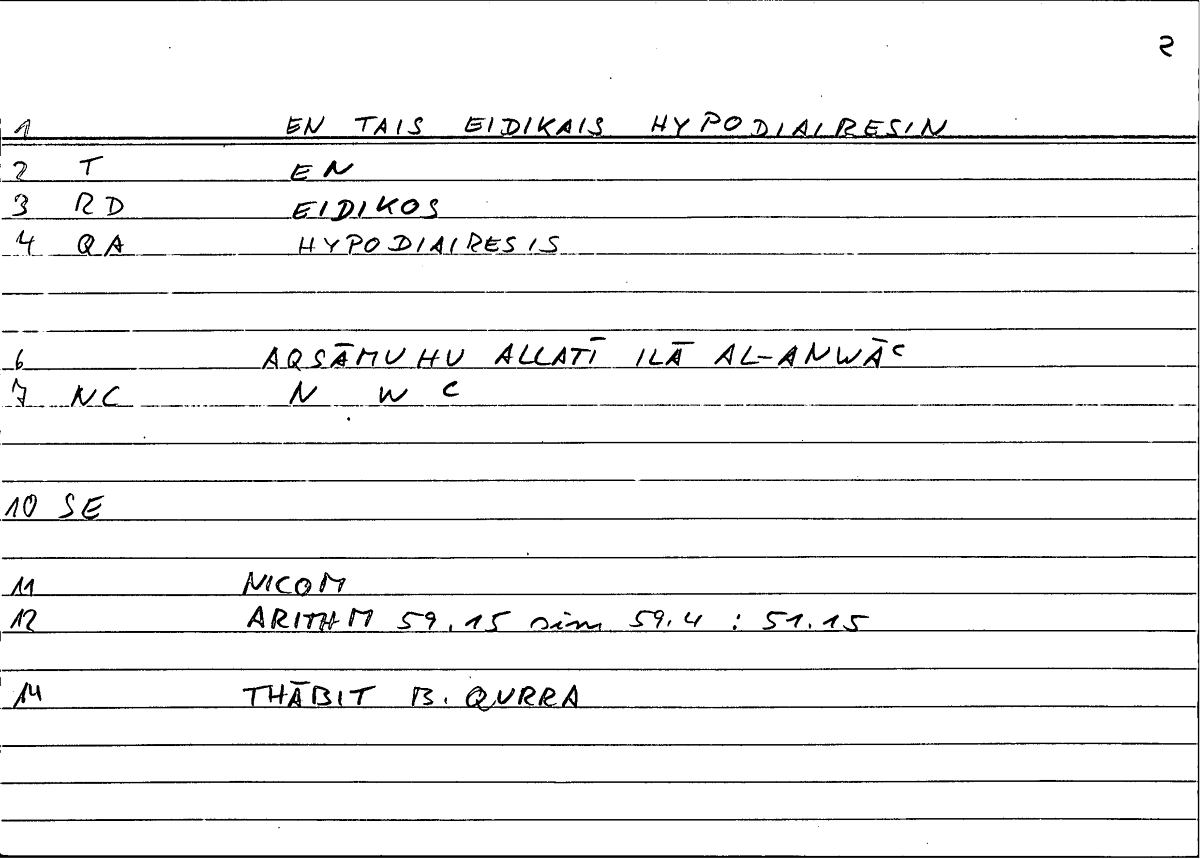 2
1 EN TAIS EIDIKAIS HYPODIAIRESIN
2 T EN
3 RD EIDIKOS
4 QA HYPODIAIRESIS
6 AQSĀMUHU ALLATĪ ILĀ AL-ANWĀC
7 NC N W C
10 SE
11 NICOM
12 ARITHM 59.15 sim 59.4 : 51.15
14 THĀBIT B. QURRA